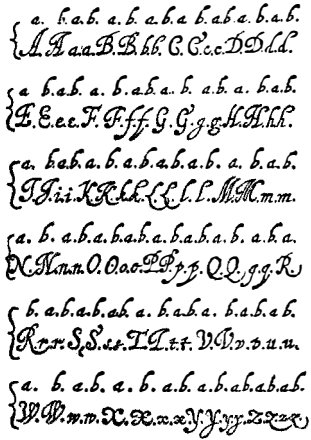 a. b.a.b. a. b.a.b.a b.a.b.a.b.a.b.
A A a.a.B.B.b.b. C.C.c.c.D.D.d.d.
a b.a.b. a. b.a.b.a. b. a.b.a. b.a.b.
E.E.e.e.F.F.f f.G.G.g.g.H.H.h.h.
a. b.a.b. a. b.a.b.a.b.a.b. a. b.a.b.
I I i.i.K.K.k.k.L.L.l.l.M.M.m.m.
a. b. a.b.a.b.a.b a.b.a.b.a.b. a.b.a.
N.N.n.n.O.O.o.o.P.P.p.p.Q.Q.q.q.R
b. a.b.a.b.ab a. b.a.b.a. b.a.b.a.b.
R.r.r.S.S.s.s.T.T.t.t. V.V.v.v.u.u.
a. b. a.b. a. b. a.b. a.b.a.b.a.b.a.b.
W.W.w.w.X.X.x.x.Y.Y.y.y.Z.Z.z.z.